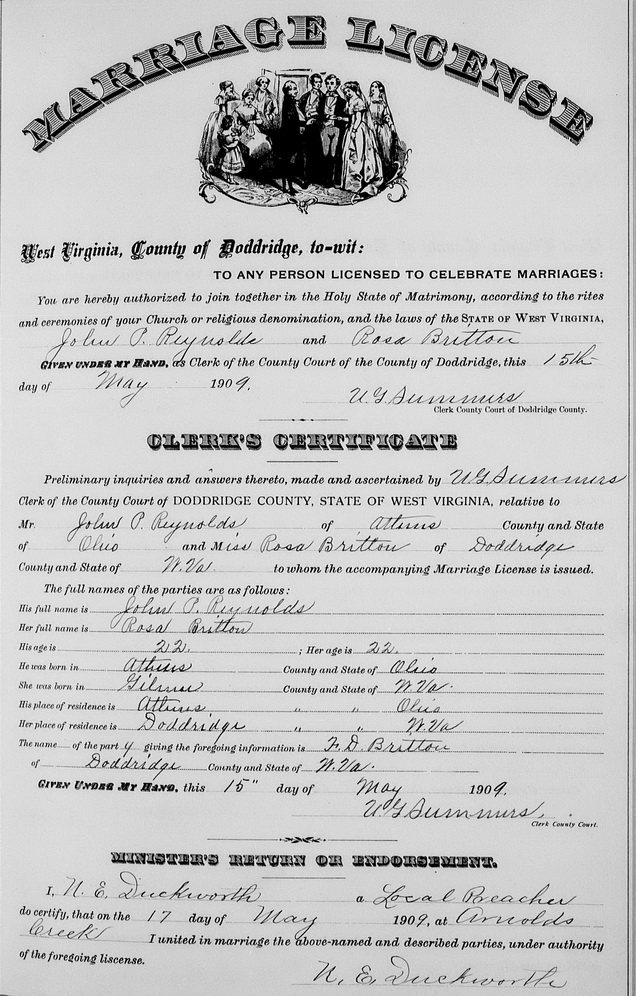 MARRIAGE LICENSE
West Virginia, County of Doddridge, to-wit:
TO ANY PERSON LICENSED TO CELEBRATE MARRIAGES:
You are hereby authorized to join together in the Holy State of Matrimony, according to the rites
and ceremonies of your Church or religious denomination, and the laws of the STATE OF WEST VIRGINIA,
John P. Reynolds and Rosa Britton
GIVEN UNDER MY HAND, as Clerk of the County Court of the County of Doddridge, this 15th
day of May 1909.
U G Summers
Clerk County Court of Doddridge County.
CLERK'S CERTIFICATE
Preliminary inquiries and answers thereto, made and ascertained by U G Summers
Clerk of the County Court of DODDRIDGE COUNTY, STATE OF WEST VIRGINIA, relative to
Mr. John P. Reynolds of Athens County and State
of Ohio and Miss Rosa Britton of Doddridge
County and State of W.Va. to whom the accompanying Marriage License is issued.
The full names of the parties are as follows:
His full name is John P. Reynolds
Her full name is Rosa Britton
His age is 22. ; Her age is 22.
He was born in Athens County and State of Ohio
She was born in Gilmer County and State of W.Va.
His place of residence is Athens " " Ohio
Her place of residence is Doddridge " " W.Va
The name of the part y giving the foregoing information is F. D. Britton
of Doddridge County and State of W.Va.
GIVEN UNDER MY HAND, this 15" day of May 1909.
U G Summers,
Clerk County Court.
MINISTER'S RETURN OR ENDORSEMENT.
I, N. E. Duckworth a Local Preacher
do certify, that on the 17 day of May 1909, at Arnolds
Creek I united in marriage the above-named and described parties, under authority
of the foregoing liscense.
N. E. Duckworth